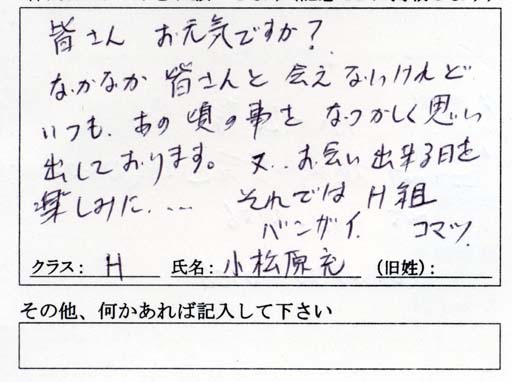 皆さん お元気ですか?
なかなか 皆さんと 会えないけれど
いつも、あの頃の事を なつかしく思い
出しております。 又、お会い出来る日を
楽しみに、… それでは H組
バンザイ コマツ
クラス: H 氏名: 小松原充 (旧姓):
その他、何かあれば記入して下さい